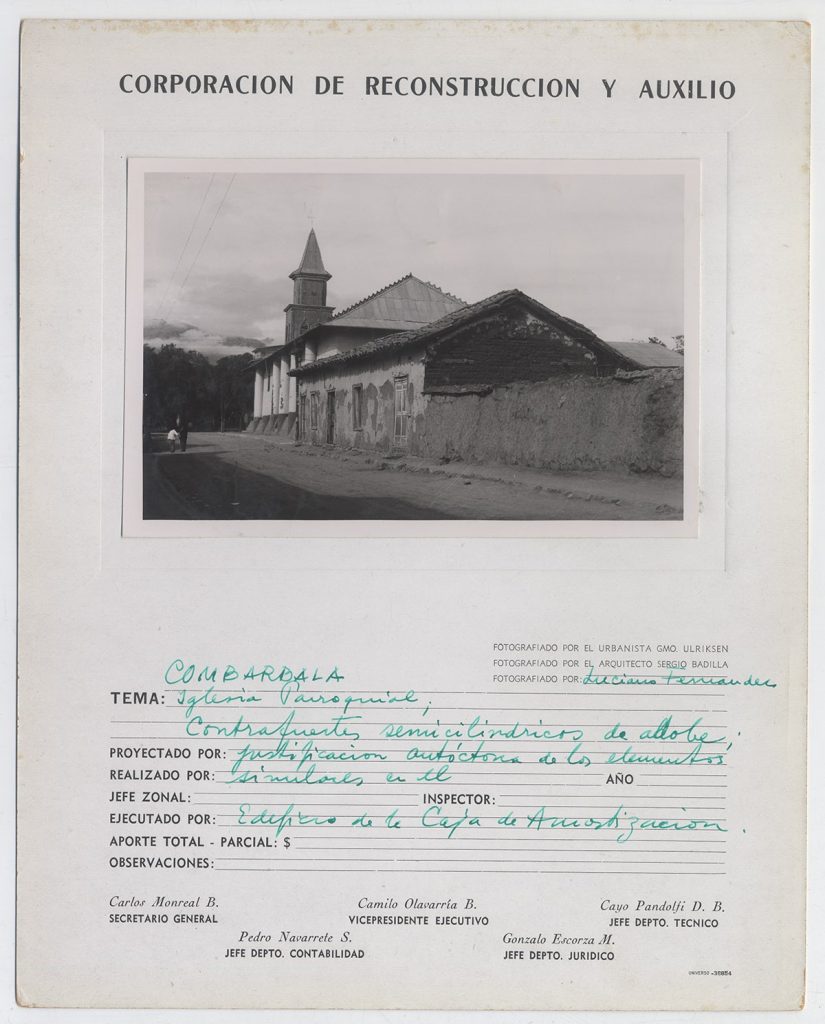 CORPORACION DE RECONSTRUCCION Y AUXILIO
FOTOGRAFIADO POR EL URBANISTA GMO. ULRIKSEN
FOTOGRAFIADO POR EL ARQUITECTO SERGIO BADILLA
FOTOGRAFIADO POR: Luciano Fernandez
COMBARBALA
TEMA: Iglesia Parroquial;
Contrafuertes semicilindricos de adobe;
PROYECTADO POR: justificacion autóctona de los elementos
REALIZADO POR: similares en el AÑO
JEFE ZONAL: INSPECTOR:
EJECUTADO POR: Edificio de la Caja de Amortizacion.
APORTE TOTAL - PARCIAL: $
OBSERVACIONES:
Carlos Monreal B. Camilo Olavarría B. Cayo Pandolfi D. B.
SECRETARIO GENERAL VICEPRESIDENTE EJECUTIVO JEFE DEPTO. TECNICO
Pedro Navarrete S. Gonzalo Escorza M.
JEFE DEPTO. CONTABILIDAD JEFE DEPTO. JURIDICO
UNIVERSO -38854